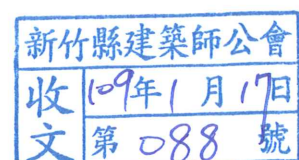 新竹縣建築師公會
收文
109年1月17日
第088號